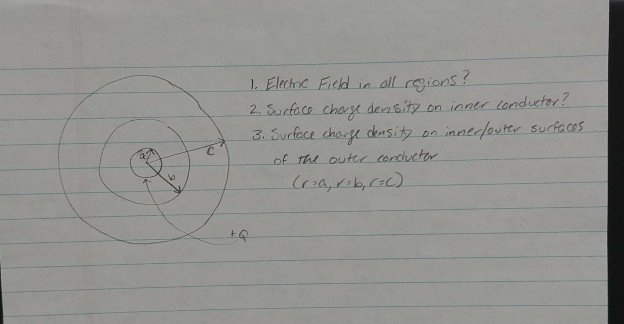 1. Electric Field in all regions?
2. Surface charge density on inner conductor?
3. Surface charge density on inner/outer surfaces
of the outer conductor
(r=a, r=b, r=c)
a
b
c
+Q